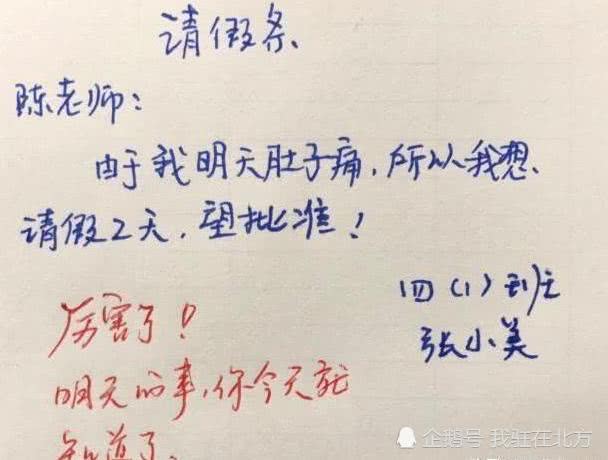 请假条
陈老师:
由于我明天肚子痛,所以我想
请假2天,望批准!
四(1)班
张小美
厉害了!
明天的事,你今天就
知道了。
企鹅号 我驻在北方